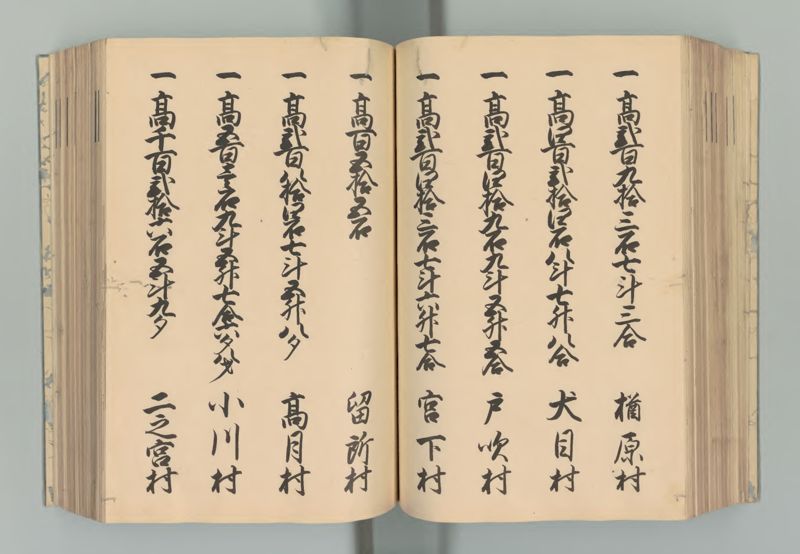 一 高弐百九拾三石七斗三合 楢原村
一 高四百弐拾四石八斗七升八合 犬目村
一 高弐百四拾九石九斗五升五合 戸吹村
一 高弐百四拾三石七斗六升七合 宮下村
一 高百五拾五石 留所村
一 高弐百八拾四石七斗五升八夕 高月村
一 高五百三石九斗五升七合六夕八才 小川村
一 高千百弐拾六石五斗九夕 二之宮村